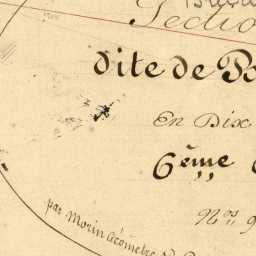 Sectio
dite de B
En Dix
6ème
Nos 9
par Morin Géomètre